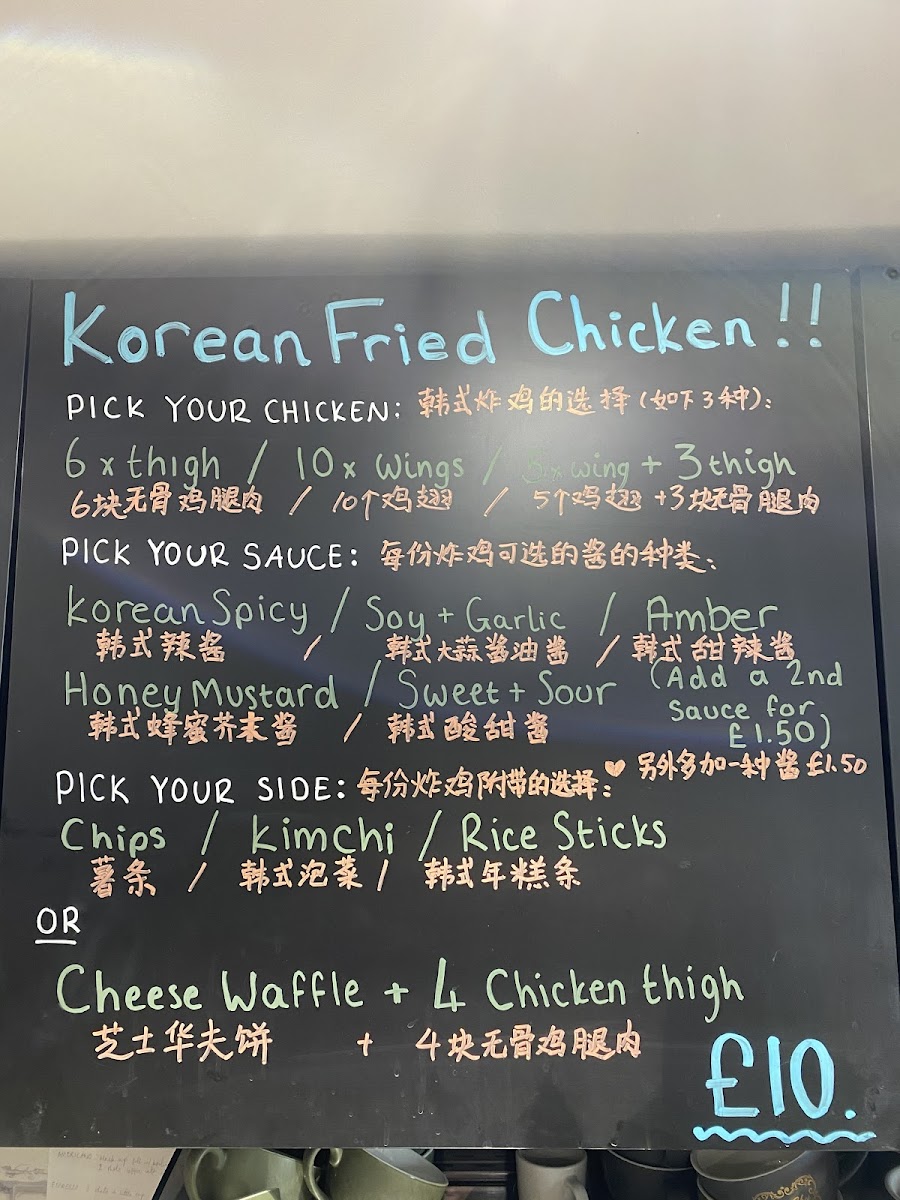 Korean Fried Chicken !!
PICK YOUR CHICKEN: 韩式炸鸡的选择 (如下3种):
6 x thigh / 10 x Wings / 5 x wing + 3 thigh
6块无骨鸡腿肉 / 10个鸡翅 / 5个鸡翅 +3块无骨腿肉
PICK YOUR SAUCE: 每份炸鸡可选的酱的种类:
Korean Spicy / Soy + Garlic / Amber
韩式辣酱 / 韩式大蒜酱油酱 / 韩式甜辣酱
Honey Mustard / Sweet + Sour (Add a 2nd
sauce for
£1.50)
韩式蜂蜜芥末酱 / 韩式酸甜酱
♥ 另外多加一种酱 £1.50
PICK YOUR SIDE: 每份炸鸡附带的选择:
Chips / Kimchi / Rice Sticks
薯条 / 韩式泡菜 / 韩式年糕条
OR
Cheese Waffle + 4 Chicken thigh
芝士华夫饼 + 4块无骨鸡腿肉
£10.